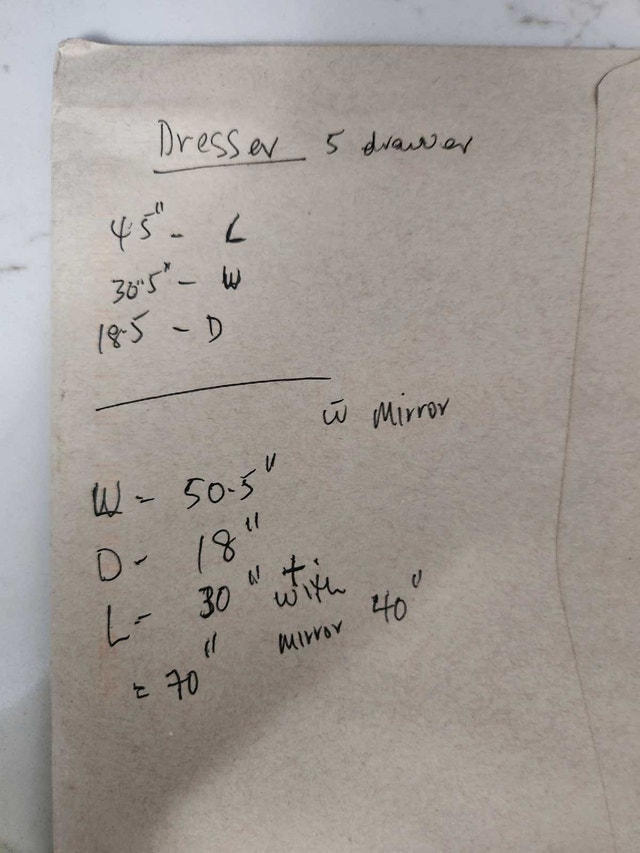 Dresser 5 drawer
45" - L
30.5" - W
18.5 - D
w̄ Mirror
W = 50.5"
D - 18"
L = 30" + with mirror 40"
= 70"